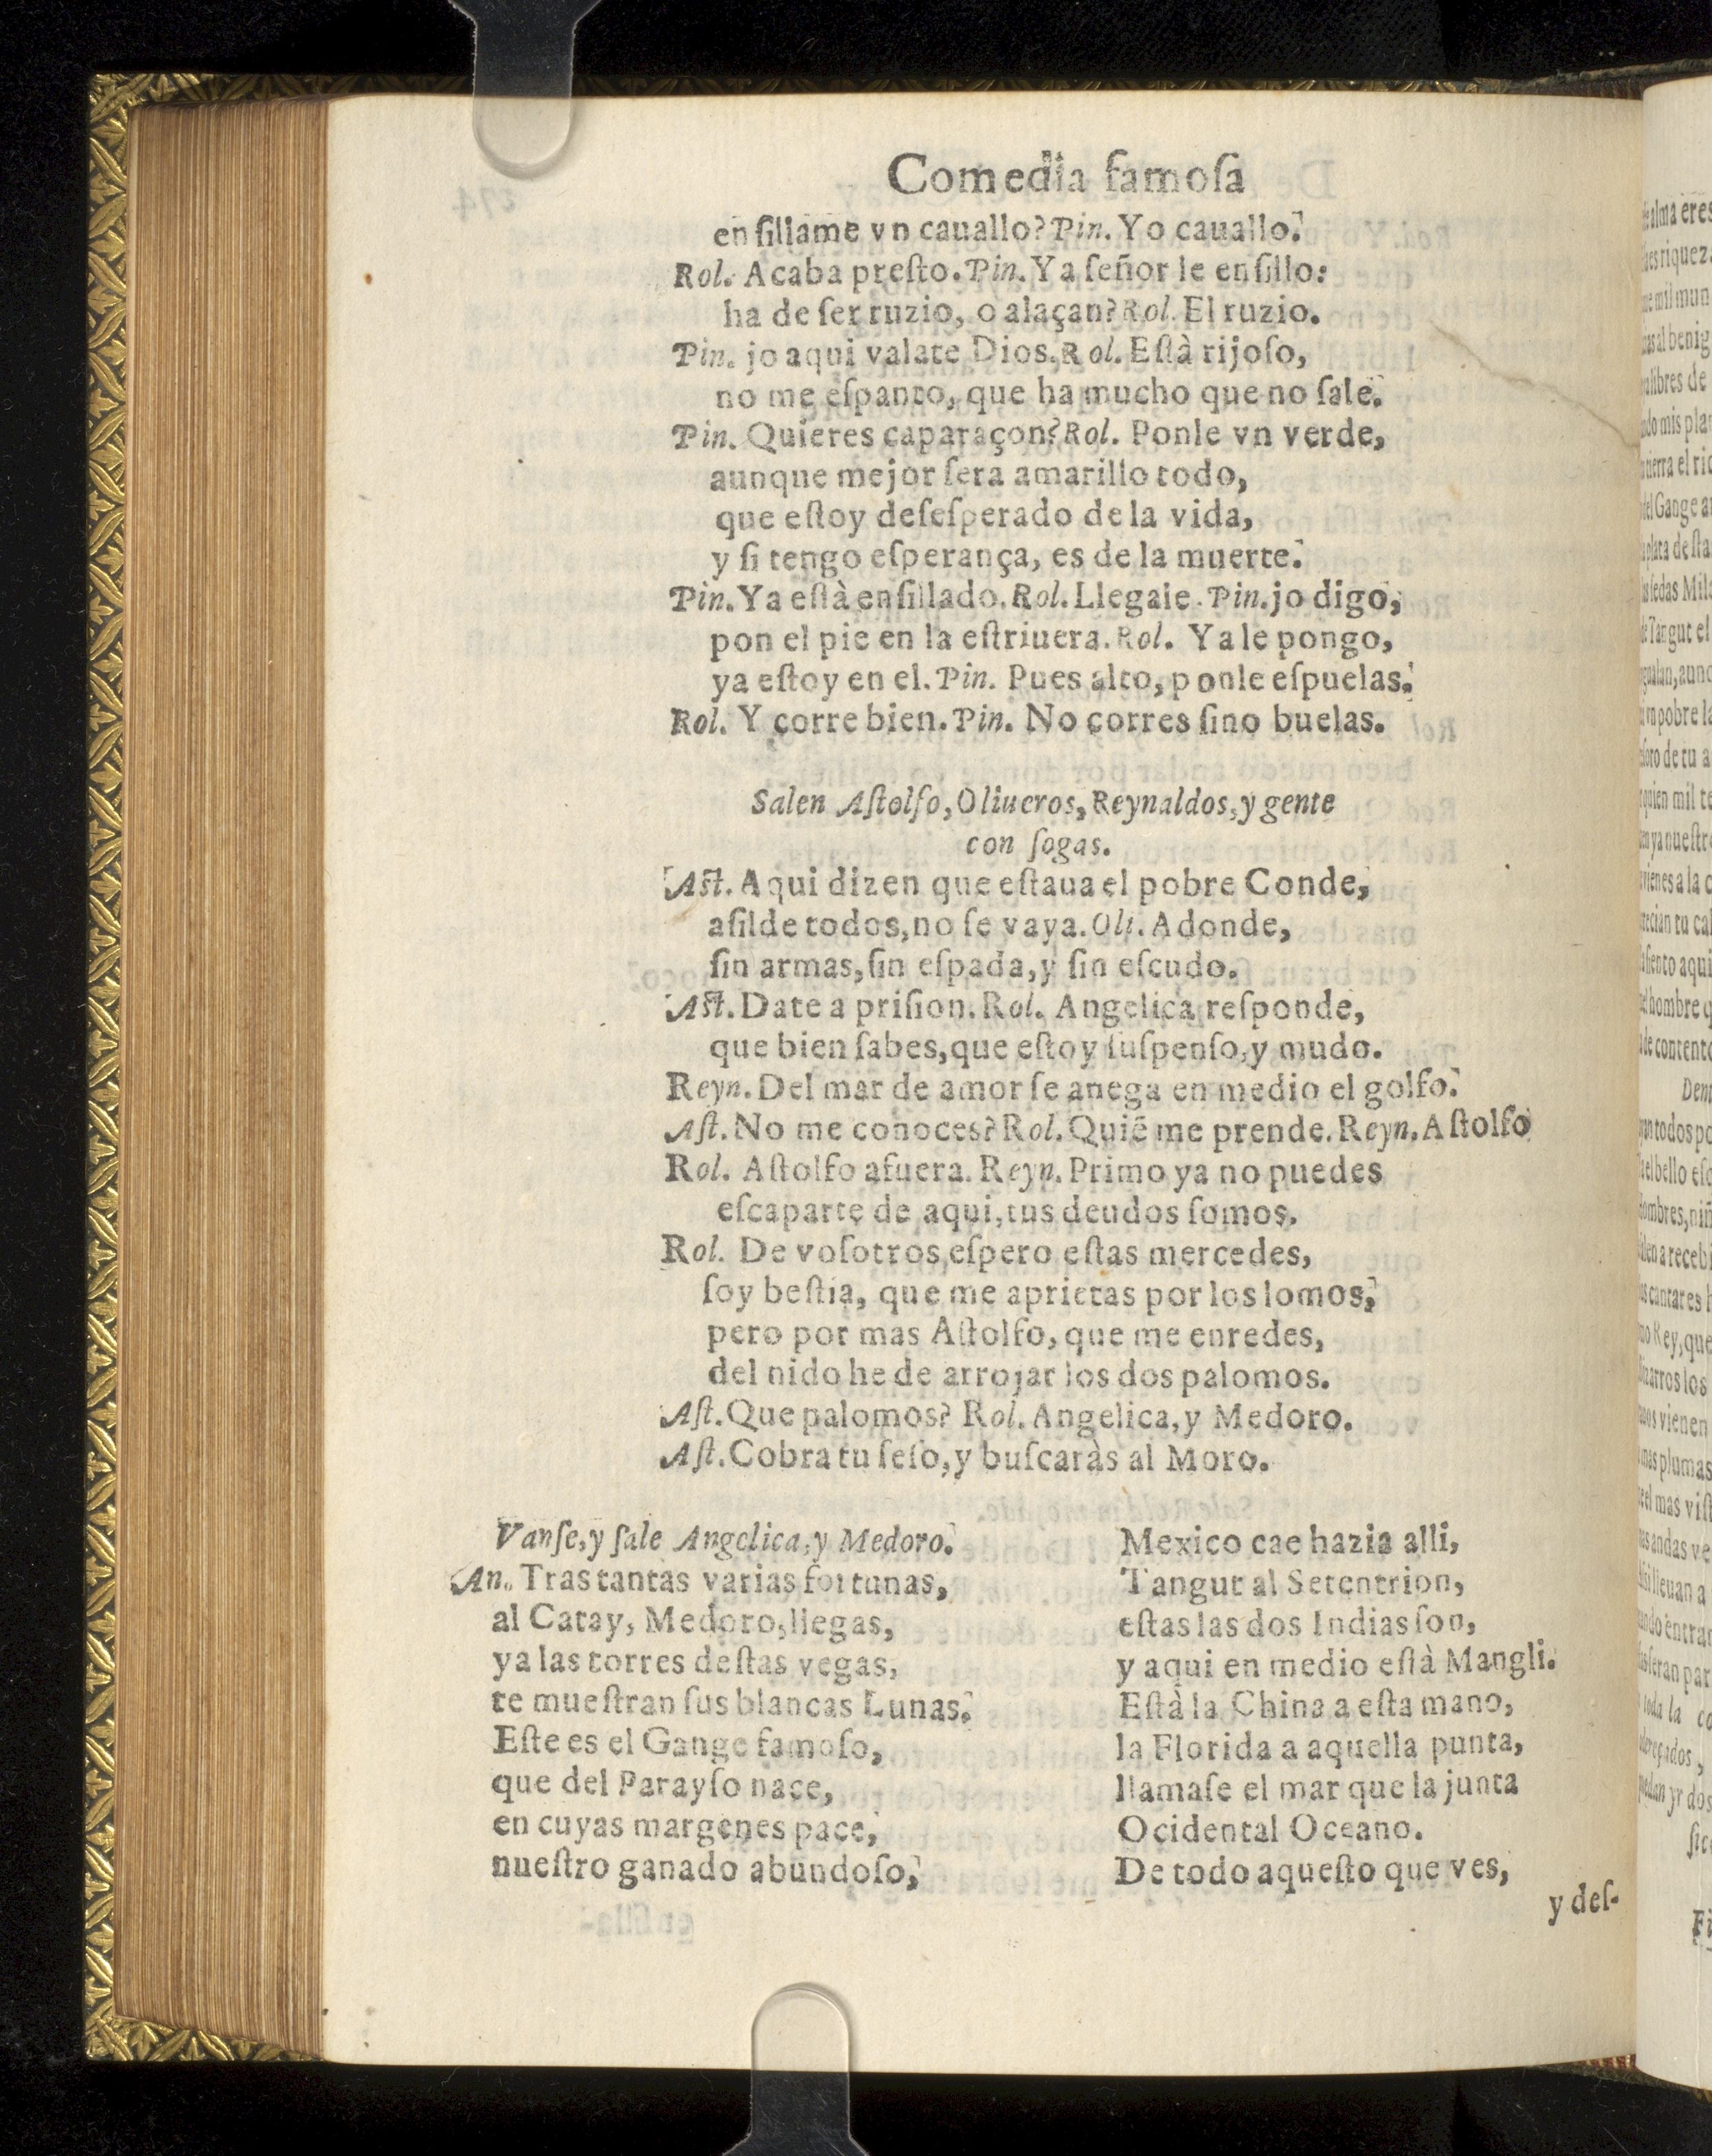 Comedia famoſa
enſillame vn cauallo? Pin. Yo cauallo.
Rol. Acaba preſto. Pin. Ya ſeñor le enſillo:
ha de ſer ruzio, o alaçan? Rol. El ruzio.
Pin. jo aqui valate Dios. Rol. Eſtà rijoſo,
no me eſpanto, que ha mucho que no ſale.
Pin. Quieres caparaçon? Rol. Ponle vn verde,
aunque mejor ſera amarillo todo,
que eſtoy deſeſperado de la vida,
y ſi tengo eſperança, es de la muerte.
Pin. Ya eſtà enſillado. Rol. Llegale. Pin. jo digo,
pon el pie en la eſtriuera. Rol. Ya le pongo,
ya eſtoy en el. Pin. Pues alto, ponle eſpuelas.
Rol. Y corre bien. Pin. No corres ſino buelas.
Salen Aſtolfo, Oliueros, Reynaldos, y gente
con ſogas.
Aſt. Aqui dizen que eſtaua el pobre Conde,
aſilde todos, no ſe vaya. Oli. Adonde,
ſin armas, ſin eſpada, y ſin eſcudo.
Aſt. Date a priſion. Rol. Angelica reſponde,
que bien ſabes, que eſtoy ſuſpenſo, y mudo.
Reyn. Del mar de amor ſe anega en medio el golfo.
Aſt. No me conoces? Rol. Quiẽ me prende. Reyn. Aſtolfo
Rol. Aſtolfo afuera. Reyn. Primo ya no puedes
eſcaparte de aqui, tus deudos ſomos.
Rol. De voſotros eſpero eſtas mercedes,
ſoy beſtia, que me aprietas por los lomos,
pero por mas Aſtolfo, que me enredes,
del nido he de arrojar los dos palomos.
Aſt. Que palomos? Rol. Angelica, y Medoro.
Aſt. Cobra tu ſeſo, y buſcaràs al Moro.
Vanſe, y ſale Angelica, y Medoro.
An. Tras tantas varias fortunas,
al Catay, Medoro, llegas,
ya las torres deſtas vegas,
te mueſtran ſus blancas Lunas.
Eſte es el Gange famoſo,
que del Parayſo nace,
en cuyas margenes pace,
nueſtro ganado abundoſo,
Mexico cae hazia alli,
Tangut al Setentrion,
eſtas las dos Indias ſon,
y aqui en medio eſtà Mangli.
Eſtà la China a eſta mano,
la Florida a aquella punta,
llamaſe el mar que la junta
Ocidental Oceano.
De todo aqueſto que ves,
y deſ-